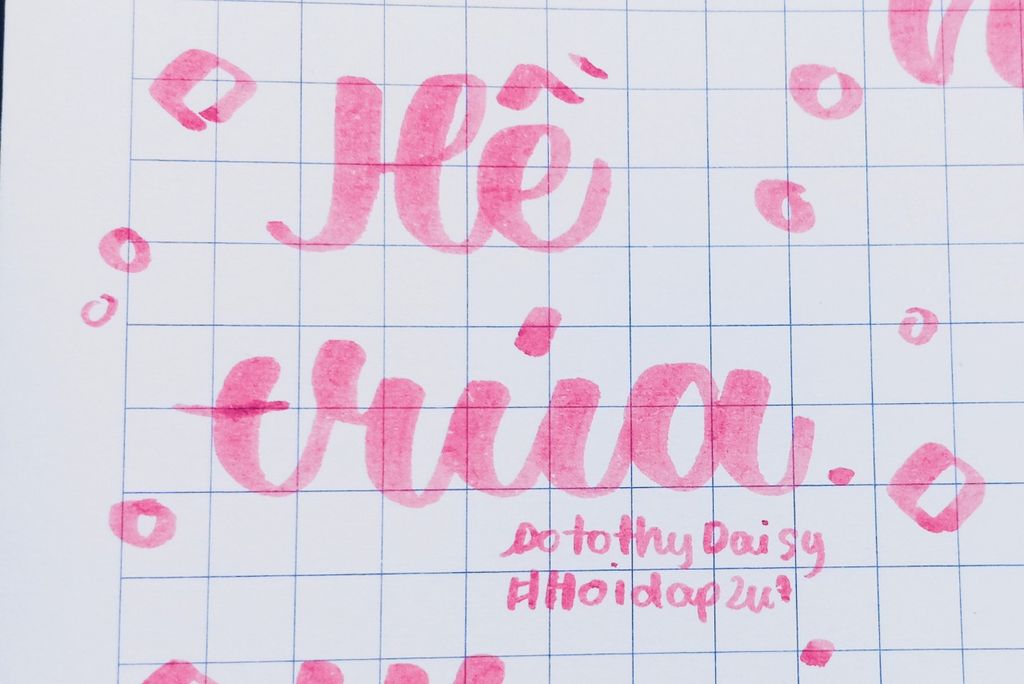 Hề
trưa.
DotothyDaisy
#Hoidap247